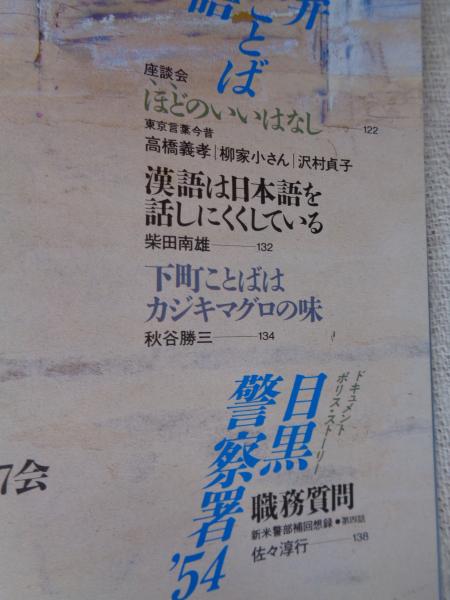 弁
語
ことば
座談会
ほどのいいはなし
122
東京言葉今昔
高橋義孝|柳家小さん|沢村貞子
漢語は日本語を
話しにくくしている
柴田南雄――132
下町ことばは
カジキマグロの味
秋谷勝三――134
ドキュメント
ポリス・ストーリー
目黒
警察署'54
職務質問
新米警部補回想録●第四話
佐々淳行――138
7会